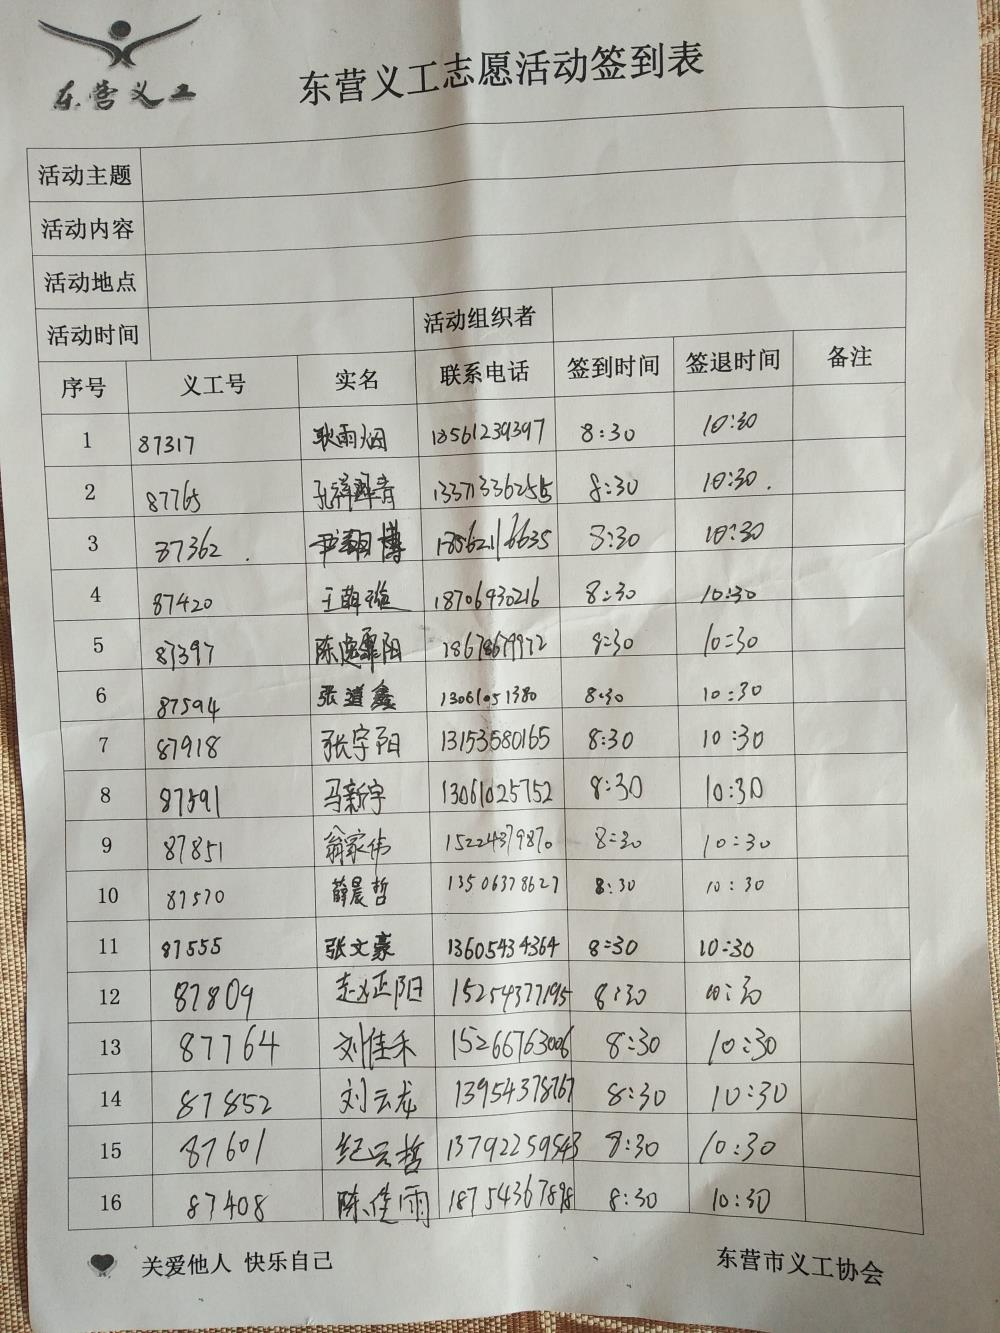 东营义工
东营义工志愿活动签到表
活动主题
活动内容
活动地点
活动时间 活动组织者
序号 义工号 实名 联系电话 签到时间 签退时间 备注
1 87317 耿雨烟 18561239397 8:30 10:30
2 87765 孔 青 13371336255 8:30 10:30.
3 87362. 尹 博 8:30 10:30
4 87420 王 18706930216 8:30 10:30
5 87397 陈 阳 8:30 10:30
6 87594 张道鑫 13061051380 8:30 10:30
7 87918 张宇阳 13153580165 8:30 10:30
8 87591 马新宇 13061025752 8:30 10:30
9 87851 翁家伟 15224379870 8:30 10:30
10 87570 薛晨哲 13506378627 8:30 10:30
11 87555 张文豪 13605434364 8:30 10:30
12 87809 赵正阳 15254377195 8:30 10:30
13 87764 刘佳禾 15266763006 8:30 10:30
14 87852 刘云龙 13954378767 8:30 10:30
15 87601 纪云哲 13792259543 8:30 10:30
16 87408 陈佳雨 18754367898 8:30 10:30
关爱他人 快乐自己 东营市义工协会